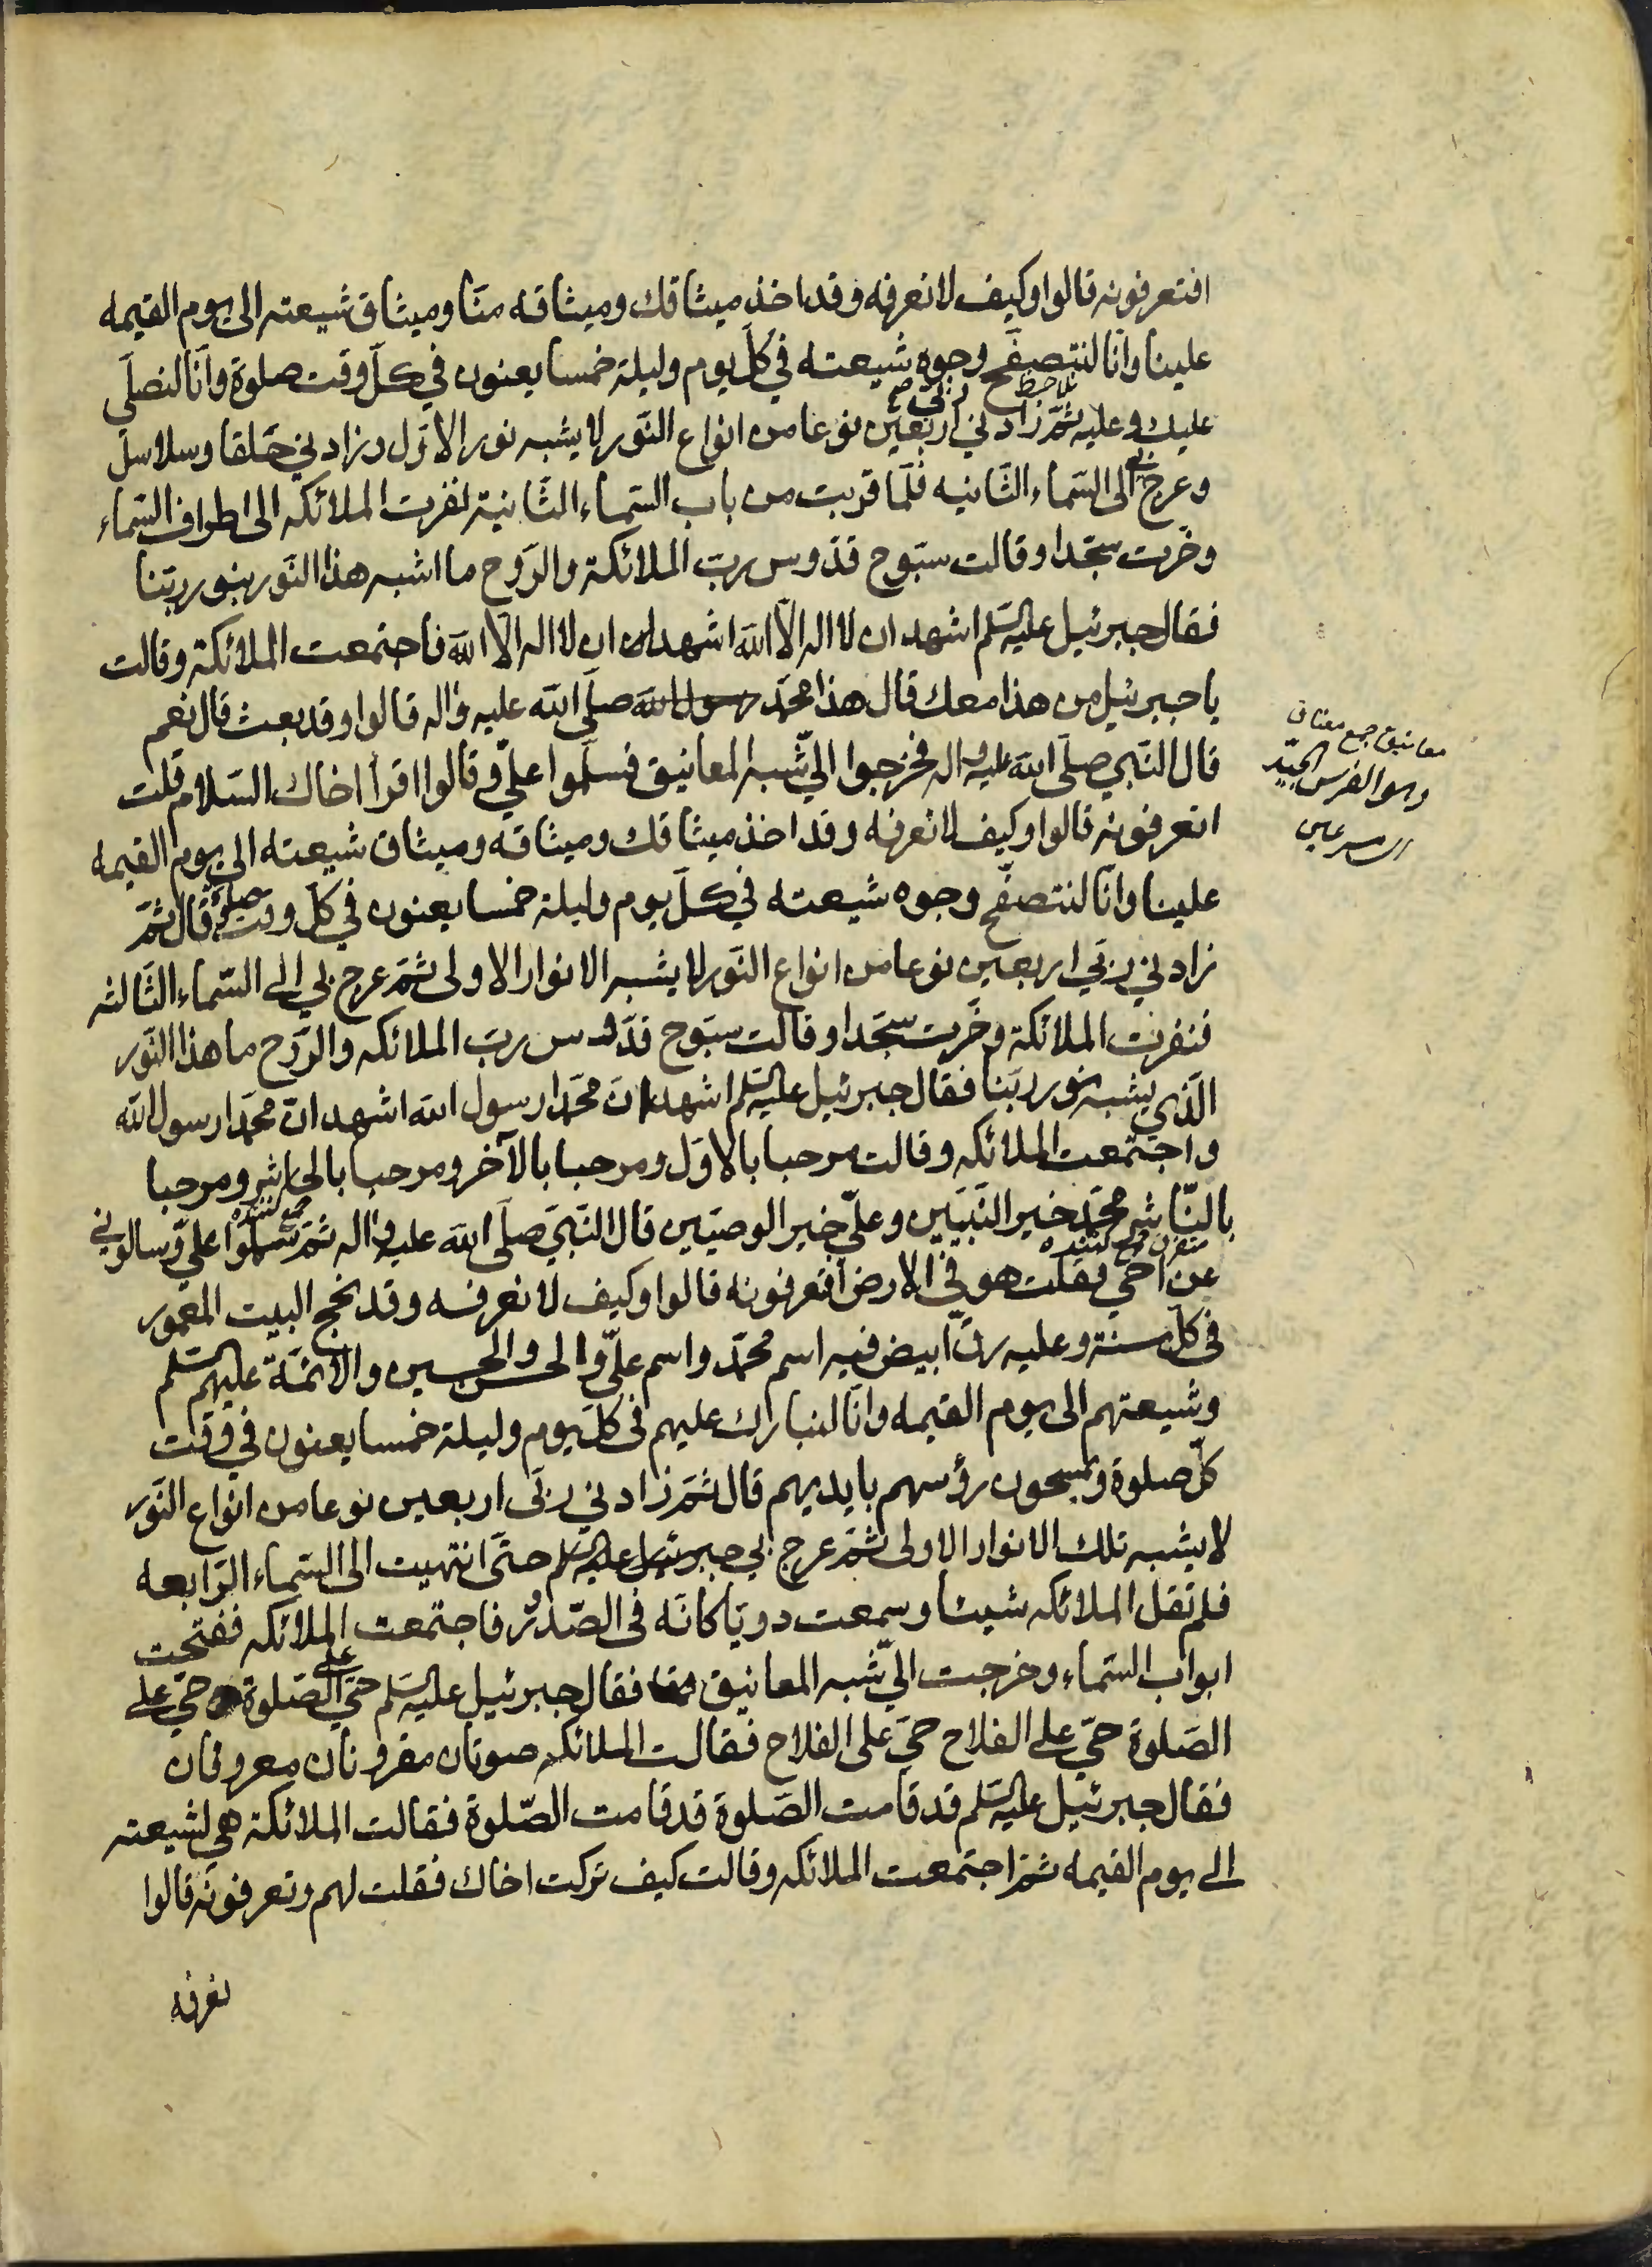 افتعرفونه قالوا وكيف لا نعرفه وقد اخذ ميثاقك وميثاقه منّا وميثاق شيعته الى يوم القيمه
علينا وانّا لنتصفّح وجوه شيعته في كلّ يوم وليلة خمسا يعنون في كلّ وقت صلوة وانّا لنصلّي
عليك وعليه ثمّ زادني ربّي اربعين نوعا من انواع النّور لا يشبه نور الاوّل وزادني حلقا وسلاسل
وعرج بي الى السّماء الثّانيه فلمّا قربت من باب السّماء الثّانية نفرت الملائكه الى اطراف السّماء
وخرّت سجّدا وقالت سبّوح قدّوس ربّ الملائكة والرّوح ما اشبه هذا النّور بنور ربّنا
فقال جبرئيل عليه السّلم اشهد ان لا اله الّا الله اشهد ان لا اله الّا الله فاجتمعت الملائكة وقالت
يا جبرئيل من هذا معك قال هذا محمّد رسول الله صلّى الله عليه واله قالوا وقد بعث قال نعم
قال النّبي صلّى الله عليه واله فخرجوا اليّ شبه المعانيق فسلّموا عليّ وقالوا اقرأ اخاك السّلام قلت
اتعرفونه قالوا وكيف لا نعرفه وقد اخذ ميثاقك وميثاقه وميثاق شيعته الى يوم القيمه
علينا وانّا لنتصفّح وجوه شيعته في كلّ يوم وليلة خمسا يعنون في كلّ وقت صلوة قال ثمّ
زادني ربّي اربعين نوعا من انواع النّور لا يشبه الانوار الاولى ثمّ عرج بي الى السّماء الثّالثه
فنفرت الملائكة وخرّت سجّدا وقالت سبّوح قدّوس ربّ الملائكه والرّوح ما هذا النّور
الّذي يشبه نور ربّنا فقال جبرئيل عليه السّلم اشهد انّ محمّدا رسول الله اشهد انّ محمّدا رسول الله
واجتمعت الملائكه وقالت مرحبا بالاوّل ومرحبا بالآخر ومرحبا بالحاشر ومرحبا
بالنّاشر محمّد خير النّبيّين وعليّ خير الوصيّين قال النّبيّ صلّى الله عليه واله ثمّ سلّموا عليّ وسالوني
عن اخي فقلت هو في الارض افتعرفونه قالوا وكيف لا نعرفه وقد نحج البيت المعمور
في كلّ سنة وعليه رقّ ابيض فيه اسم محمّد واسم عليّ والحسن والحسين والائمّة عليهم السّلم
وشيعتهم الى يوم القيمه وانّا لنبارك عليهم في كلّ يوم وليلة خمسا يعنون في وقت
كلّ صلوة ويمسحون رؤسهم بايديهم قال ثمّ زادني ربّي اربعين نوعا من انواع النّور
لا يشبه تلك الانوار الاولى ثمّ عرج بي جبرئيل عليه السلم حتّى انتهيت الى السّماء الرّابعه
فلم تقل الملائكه شيئا وسمعت دويّا كانّه في الصّدور فاجتمعت الملائكه ففتحت
ابواب السّماء وخرجت اليّ شبه المعانيق فقال جبرئيل عليه السّلم حيّ على الصّلوة حيّ على
الصّلوة حيّ على الفلاح حيّ على الفلاح فقالت الملائكه صوتان مقرونان معروفان
فقال جبرئيل عليه السّلم قد قامت الصّلوة قد قامت الصّلوة فقالت الملائكة هي لشيعته
الى يوم القيمه ثمّ اجتمعت الملائكه وقالت كيف تركت اخاك فقلت لهم وتعرفونه قالوا
نعرفه
معانيق جمع معناق
وهو الفرس الجيّد